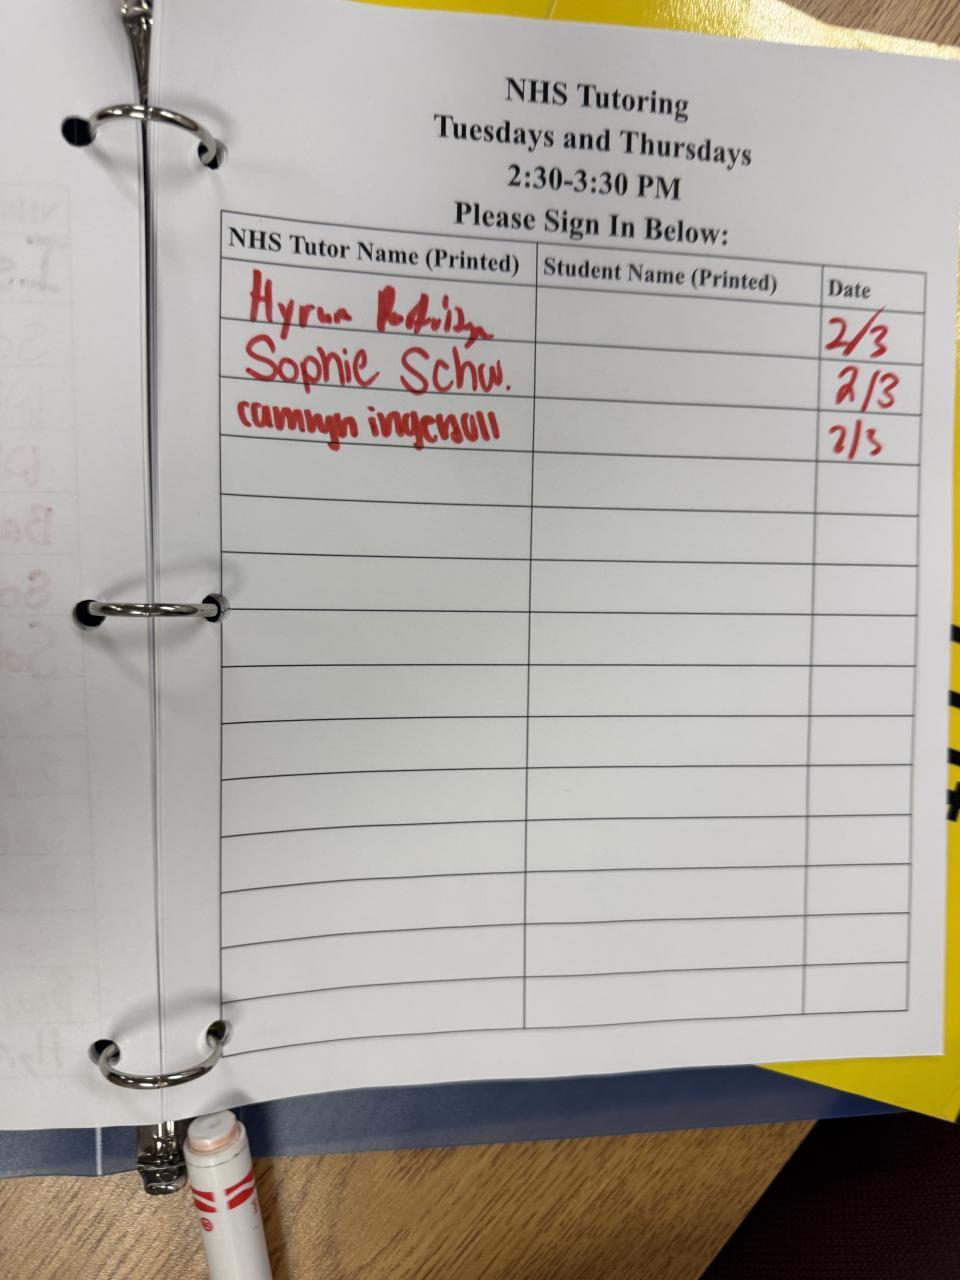 NHS Tutoring
Tuesdays and Thursdays
2:30-3:30 PM
Please Sign In Below:
NHS Tutor Name (Printed) Student Name (Printed) Date
Hyrum 2/3
Sophie Schw. 2/3
camryn ingersoll 2/3